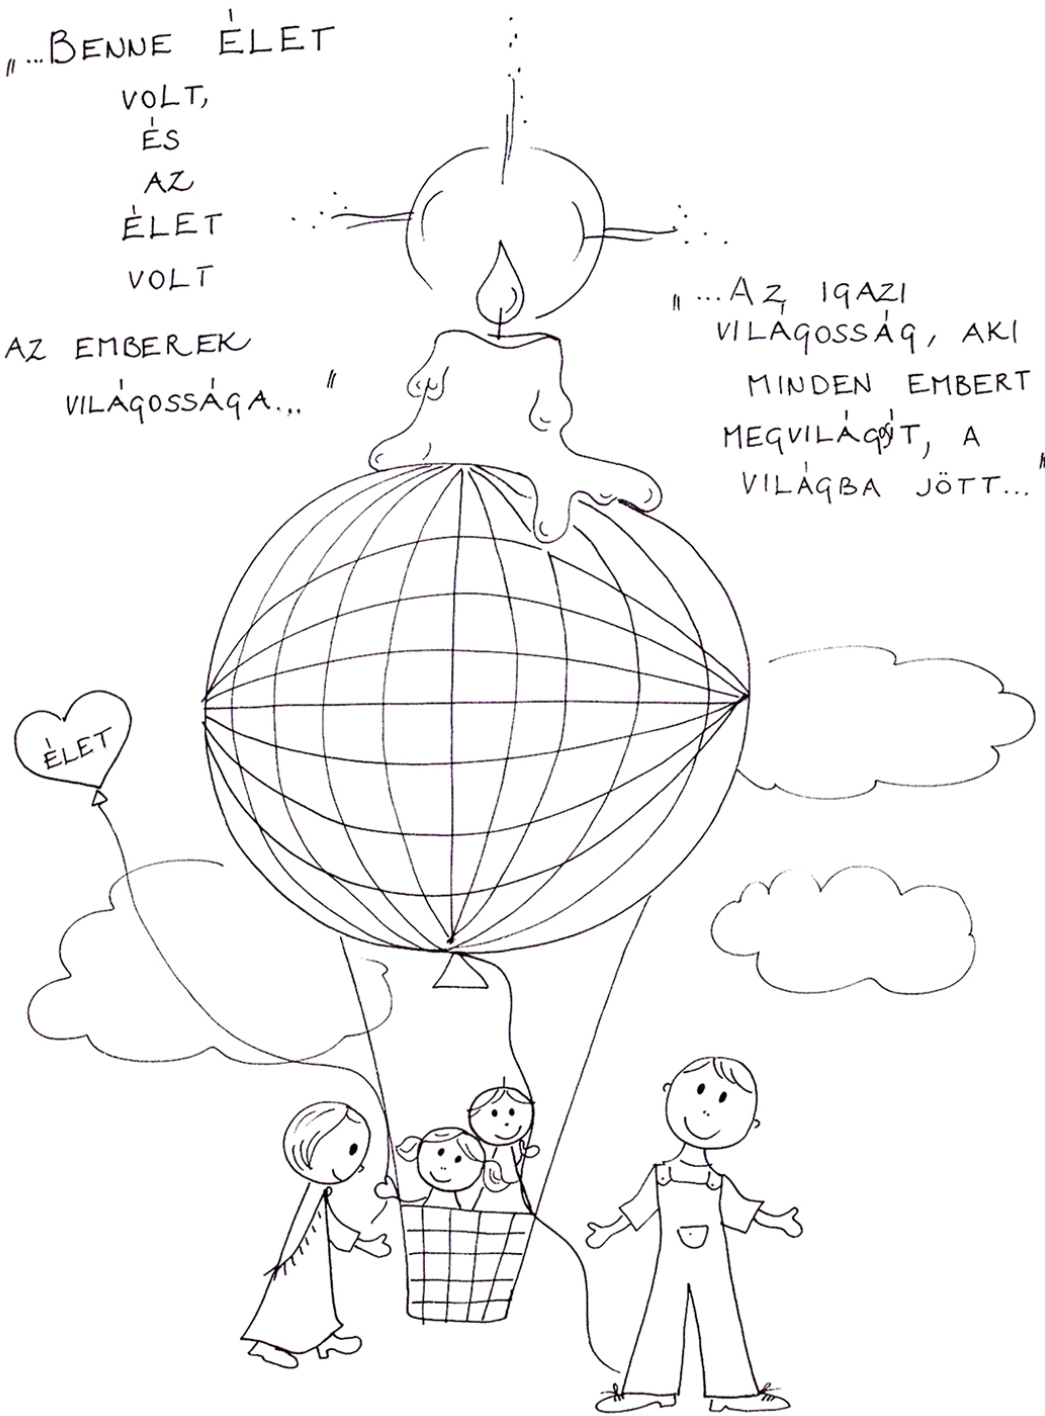 „...BENNE ÉLET
VOLT,
ÉS
AZ
ÉLET
VOLT
AZ EMBEREK
VILÁGOSSÁGA..."
„...AZ IGAZI
VILÁGOSSÁG, AKI
MINDEN EMBERT
MEGVILÁGOSÍT, A
VILÁGBA JÖTT..."
ÉLET